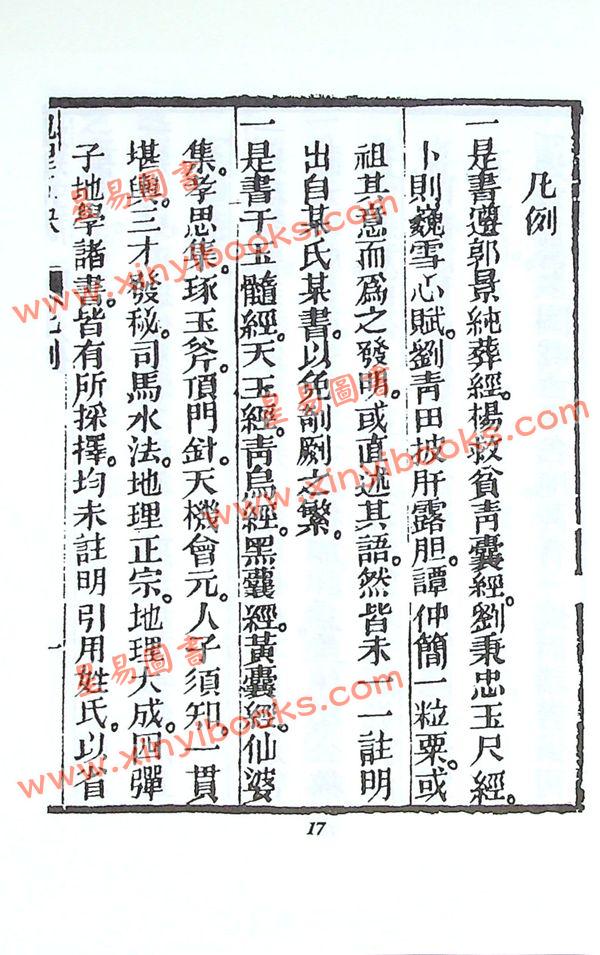 凡例
一是書遵郭景純葬經。楊救貧靑囊經。劉秉忠玉尺經。
卜則巍雪心賦。劉青田披肝露胆。譚仲簡一粒粟。或
祖其意而爲之發明。或直述其語。然皆未一一註明
出自某氏某書。以免剞劂之繁。
一是書于玉髓經。天玉經。靑烏經。黑囊經。黃囊經。仙婆
集。孝思集。琢玉斧。頂門針。天機會元。人子須知。一貫
堪輿。三才發秘。司馬水法。地理正宗。地理大成。四彈
子地學諸書。皆有所採擇。均未註明引用姓氏。以省
凡例
一
17
星易圖書
www.xinyibooks.com
星易圖書
www.xinyibooks.com
星易圖書
www.xinyibooks.com